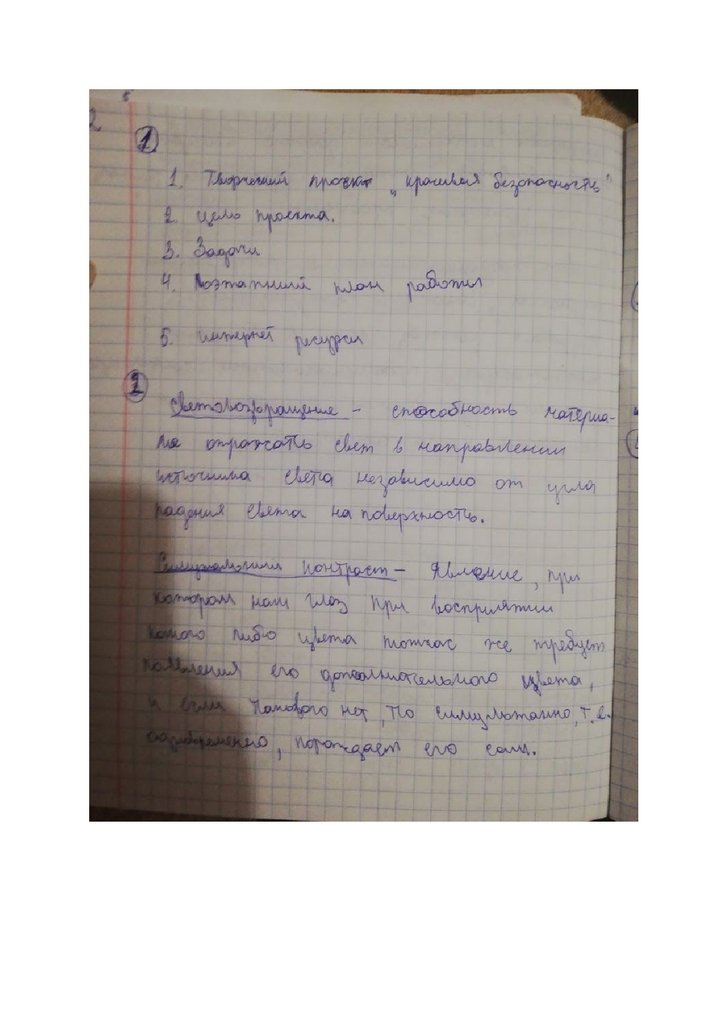 2
1
1. Творческий проект „красивая безопасность"
2. Цель проекта.
3. Задачи
4. Поэтапный план работы
5. интернет ресурсы
2
Световозвращение - способность материа-
ла отражать свет в направлении
источника света независимо от угла
падения света на поверхность.
Симультанный контраст - явление, при
котором наш глаз при восприятии
какого либо цвета тотчас же требует
появления его дополнительного цвета,
и если такового нет, то симультанно, т.е.
одновременно, порождает его сам.